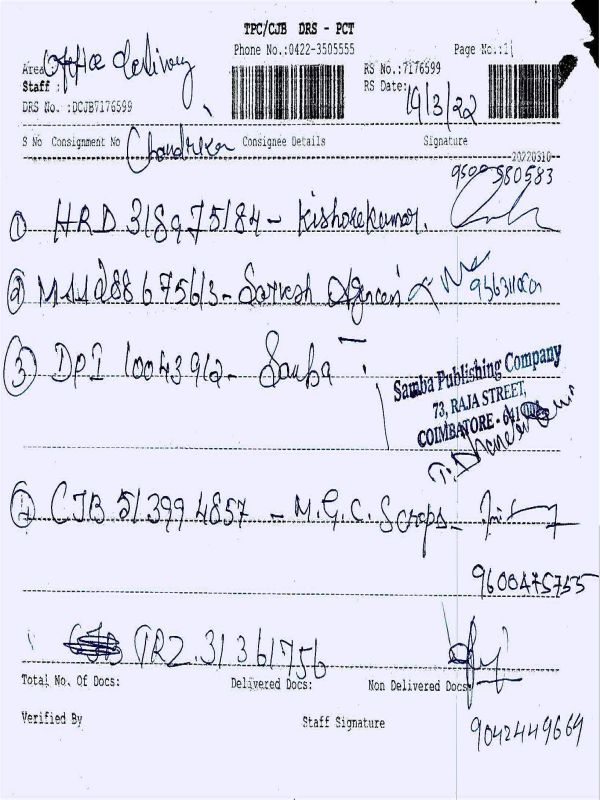 TPC/CJB DRS - PCT
Phone No.:0422-3505555 Page No.:1
Area Office delivery RS No.:7176599
Staff : RS Date: 19/3/22
DRS No. :DCJB7176599
S No Consignment No Chandrika Consignee Details Signature
20220310
9500580583
① HRD 318975184 - Kishorekumar.
② MAA 288675613 - Sarvesh Agencies
③ DPI 10043912 - Samba
Samba Publishing Company
73, RAJA STREET,
COIMBATORE - 641
④ CJB 513994857 - M.G.C. Scraps -
9600475755
TRZ 31361756
Total No. Of Docs: Delivered Docs: Non Delivered Docs
Verified By Staff Signature
9042449669